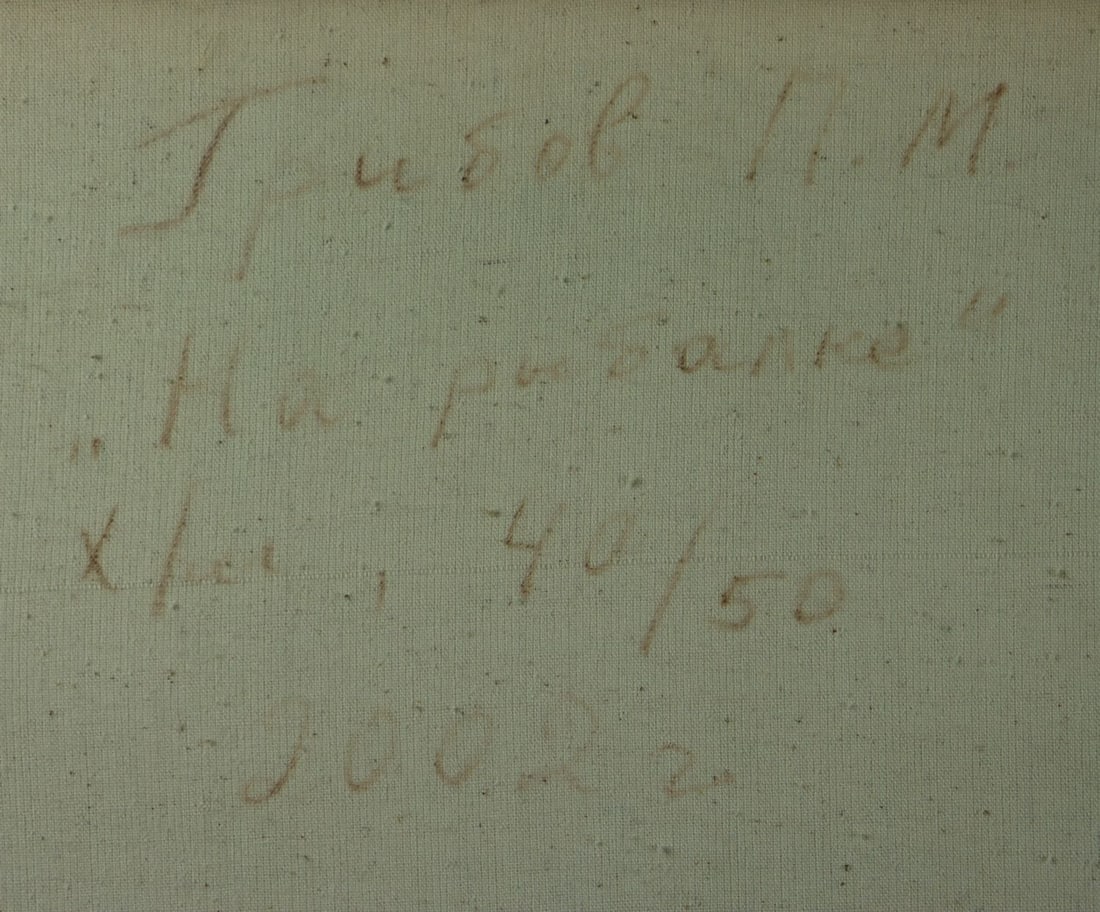 Грибов П. М.
„На рыбалке“
х/м, 40/50
2002 г.